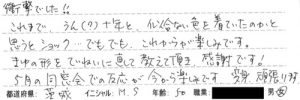 衝撃でした!!
これまで、うん(?)十年と、似合ない色を着ていたのかと
思うとショック…でもでも、これからが楽しみです。
まゆの形をていねいに直して教えて頂き、感謝です。
5月の同窓会での反応が今から楽しみです。変身、頑張ります
都道府県: 茨城 イニシャル: M.S 年齢: 50 職業: 男・女